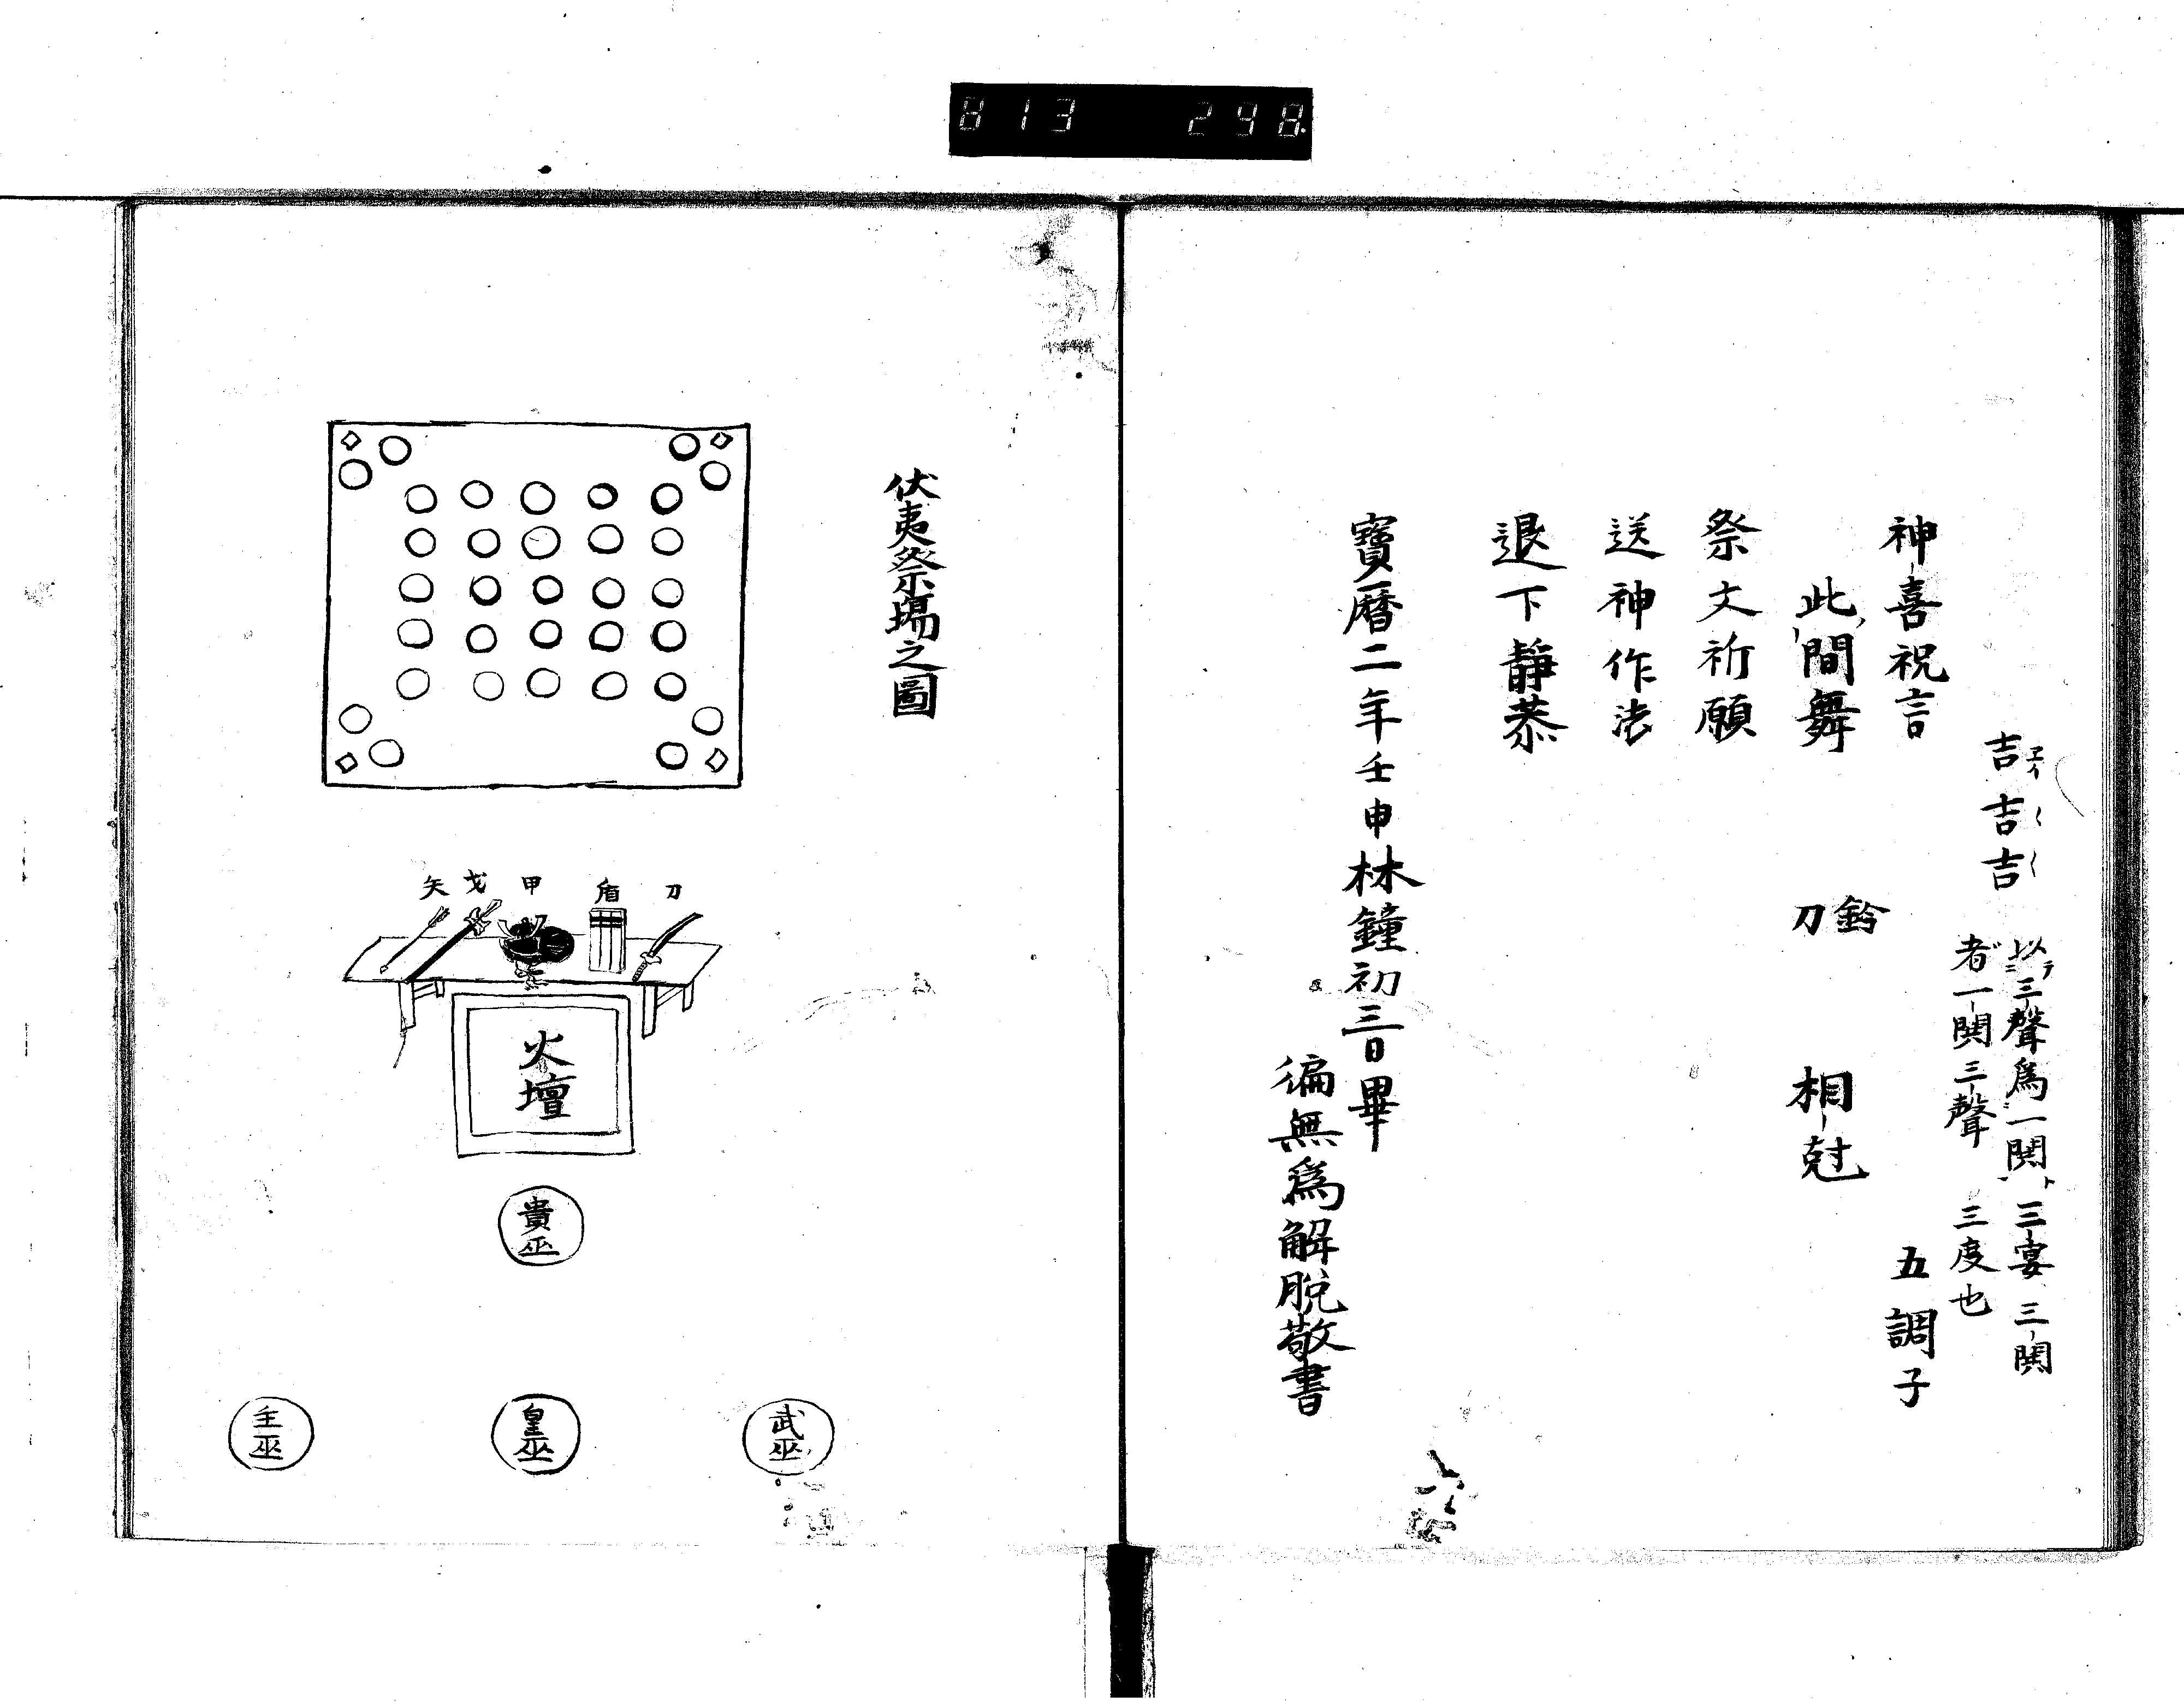 813 298
吉吉吉
エイ
以テ三聲爲一闋ト三宴三闋
者一闋三聲 三度也
神喜祝言 五調子
此間舞 鈴 刀 相尅
祭文祈願
送神作法
退下靜恭
寶曆二年壬申林鐘初三日畢
徧無爲解脫敬書
伏夷祭場之圖
矢 戈 甲 盾 刀
火壇
貴巫
武巫
皇巫
主巫